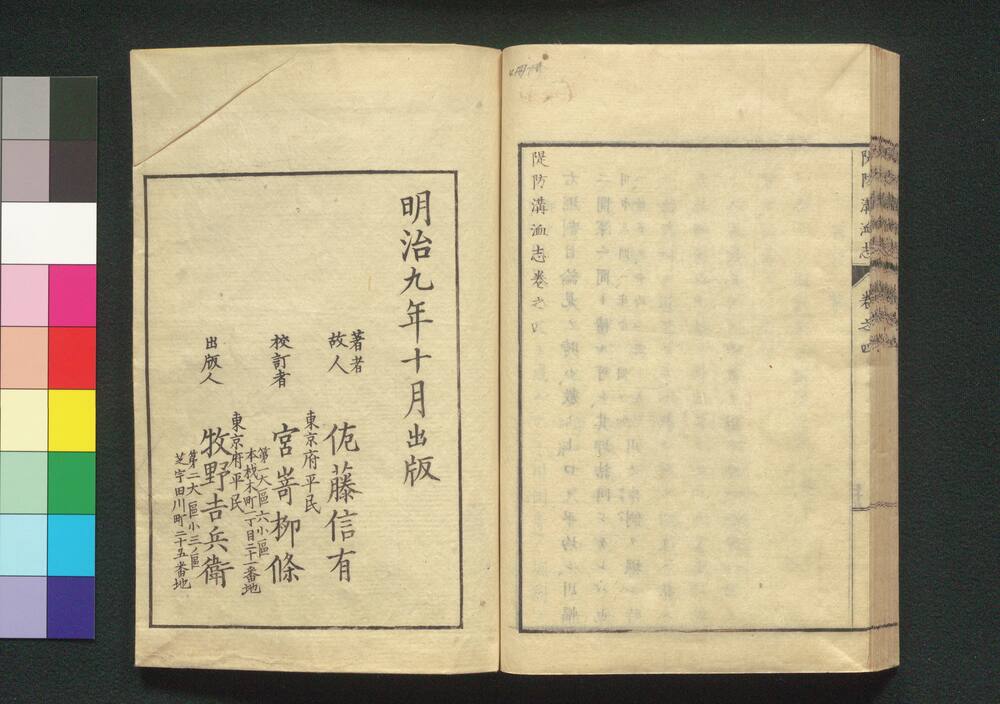 隄防溝洫志
卷之四
隄防溝洫志卷之四
明治九年十月出版
著者
故人
佐藤信有
東京府平民
校訂者
宮嵜柳條
第一大區六小區
本材木町一丁目二十一番地
東京府平民
出版人
牧野吉兵衛
第二大區小三ノ區
芝宇田川町二十五番地